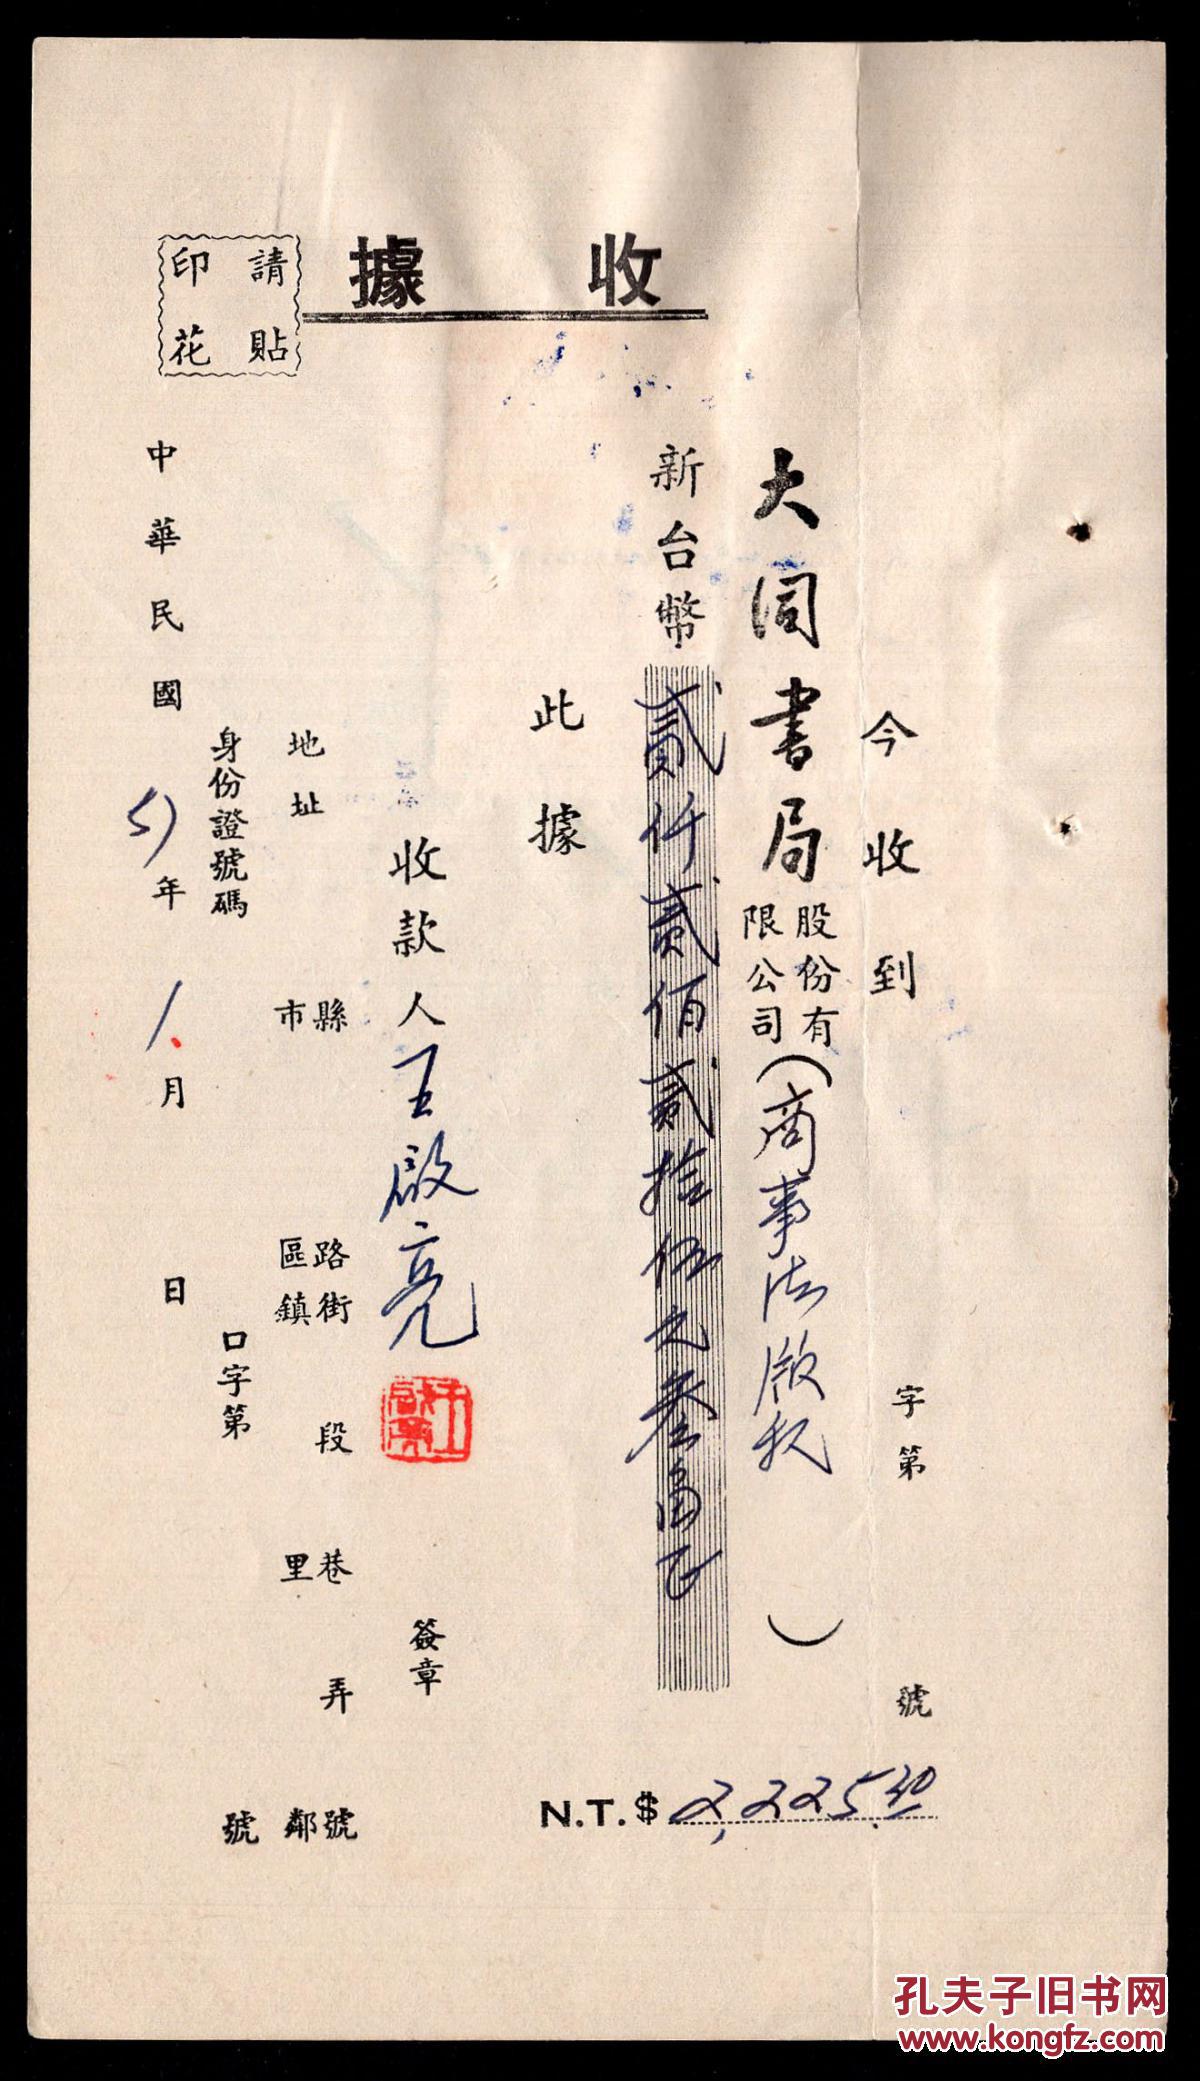 收據
請貼
印花
今收到
字第 號
大同書局股份有限公司(商事法版稅)
新台幣貳仟貳佰貳拾伍元叁角正
N.T.$ 2,225.30
此據
收款人王啟亮 簽章
地址 縣市 路街區鎮 段 巷里 弄 號鄰
身份證號碼 口字第 號
中華民國51年1月 日
孔夫子旧书网
www.kongfz.com